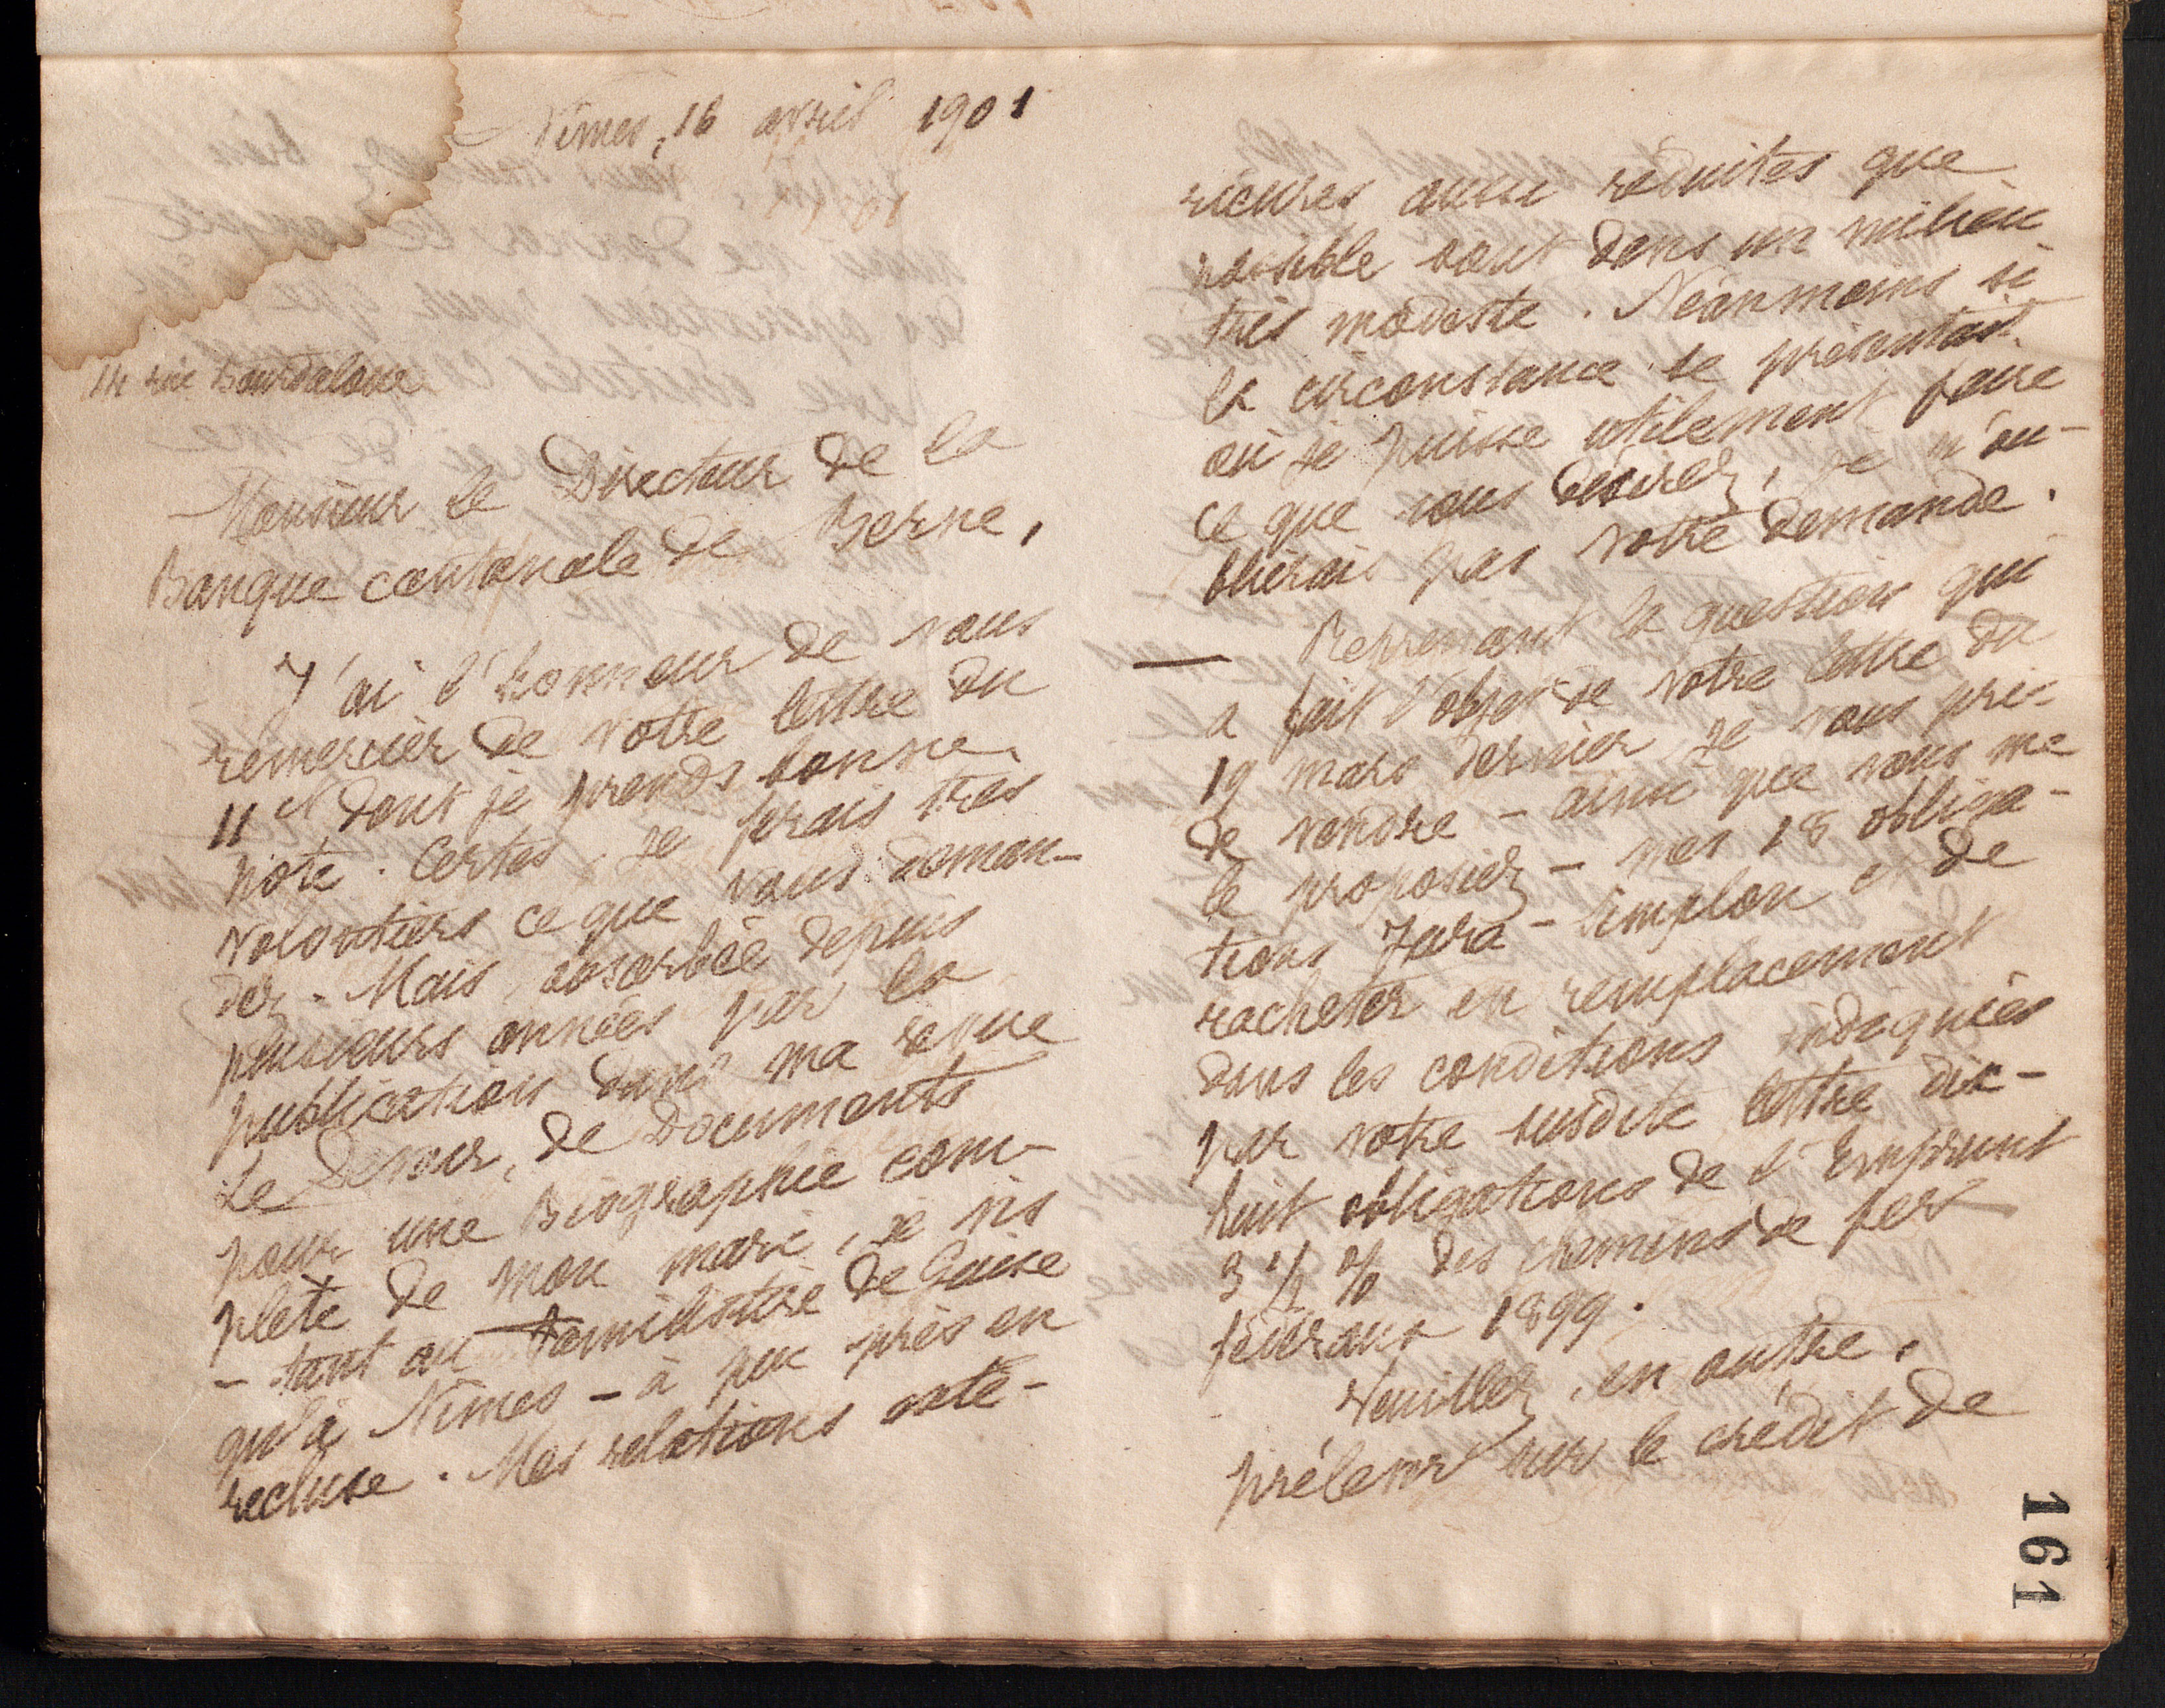 Nîmes, 16 avril 1901
14 rue Bourdaloue
Monsieur le Directeur de la
Banque cantonale de Berne,
J'ai l'honneur de vous
remercier de votre lettre du
11 et dont je prends bonne
note. Certes, je ferais très
volontiers ce que vous deman-
dez. Mais, absorbée depuis
plusieurs années par la
publication dans ma revue
Le Devoir, de Documents
pour une Biographie com-
plète de mon mari, je vis
- tant au Familistère de Guise
qu'à Nîmes - à peu près en
recluse. Mes relations exté-
rieures aussi réduites que
possible sont dans un milieu
très modeste. Néanmoins si
la circonstance se présentait
où je puisse utilement faire
ce que vous désirez, je n'ou-
blierais pas votre demande.
— Reprenant la question qui
a fait l'objet de votre lettre du
19 mars dernier je vous prie
de vendre - ainsi que vous me
le proposiez - mes 18 obliga-
tions Jura-Simplon et de
racheter en remplacement
dans les conditions indiquées
par votre susdite lettre dix-
huit obligations de l'Emprunt
3 1/2 % des chemins de fer
fédéraux 1899.
Veuillez, en outre,
prélever sur le crédit de
161